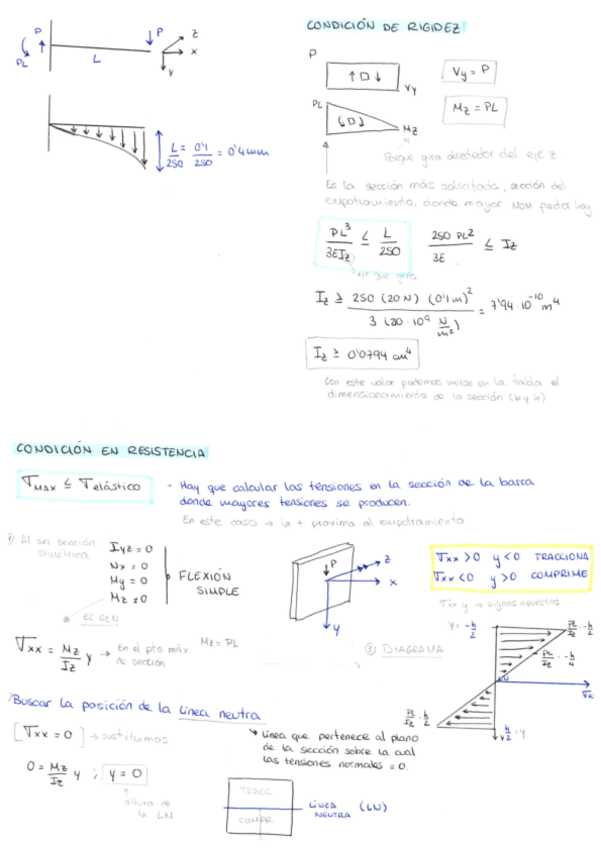 P
P
z
x
y
PL
L
L/250 = 0'1/250 = 0'4 mm
CONDICIÓN DE RIGIDEZ
P
Vy
Vy = P
PL
Mz
Mz = PL
Porque gira alrededor del eje z
Es la sección más solicitada, sección del
empotramiento, donde mayor Mom flector hay
PL³/3EIz ≤ L/250
250 PL²/3E ≤ Iz
eje que gira
Iz ≥ 250 (20 N) (0'1m)²/3 (20·10⁹ N/m²) = 7'94·10⁻¹⁰ m⁴
Iz ≥ 0'0794 cm⁴
Con este valor podemos mirar en la tabla el
dimensionamiento de la sección (b y h)
CONDICIÓN EN RESISTENCIA
σMAX ≤ σelástico
- Hay que calcular las tensiones en la sección de la barra
donde mayores tensiones se producen.
En este caso → la + proxima al empotramiento
1) Al ser sección
simétrica
Iyz = 0
Nx = 0
My = 0
Mz ≠ 0
FLEXIÓN
SIMPLE
EC GEN
P
z
x
y
σxx > 0 y < 0 TRACCIONA
σxx < 0 y > 0 COMPRIME
σxx y → signos opuestos
σxx = Mz/Iz y → En el pto máx
de sección
Mz = PL
③ DIAGRAMA
y = -h/2
PL/Iz · -h/2
PL/Iz · -h/4
LN
σx
PL/Iz · h/2
h/2 = y
Buscar la posición de la linea neutra
[σxx = 0] → sustituimos
0 = Mz/Iz y ; y = 0
altura de
la LN
Linea que pertenece al plano
de la sección sobre la cual
las tensiones normales = 0.
TRACC
COMPR
LÍNEA
NEUTRA (LN)